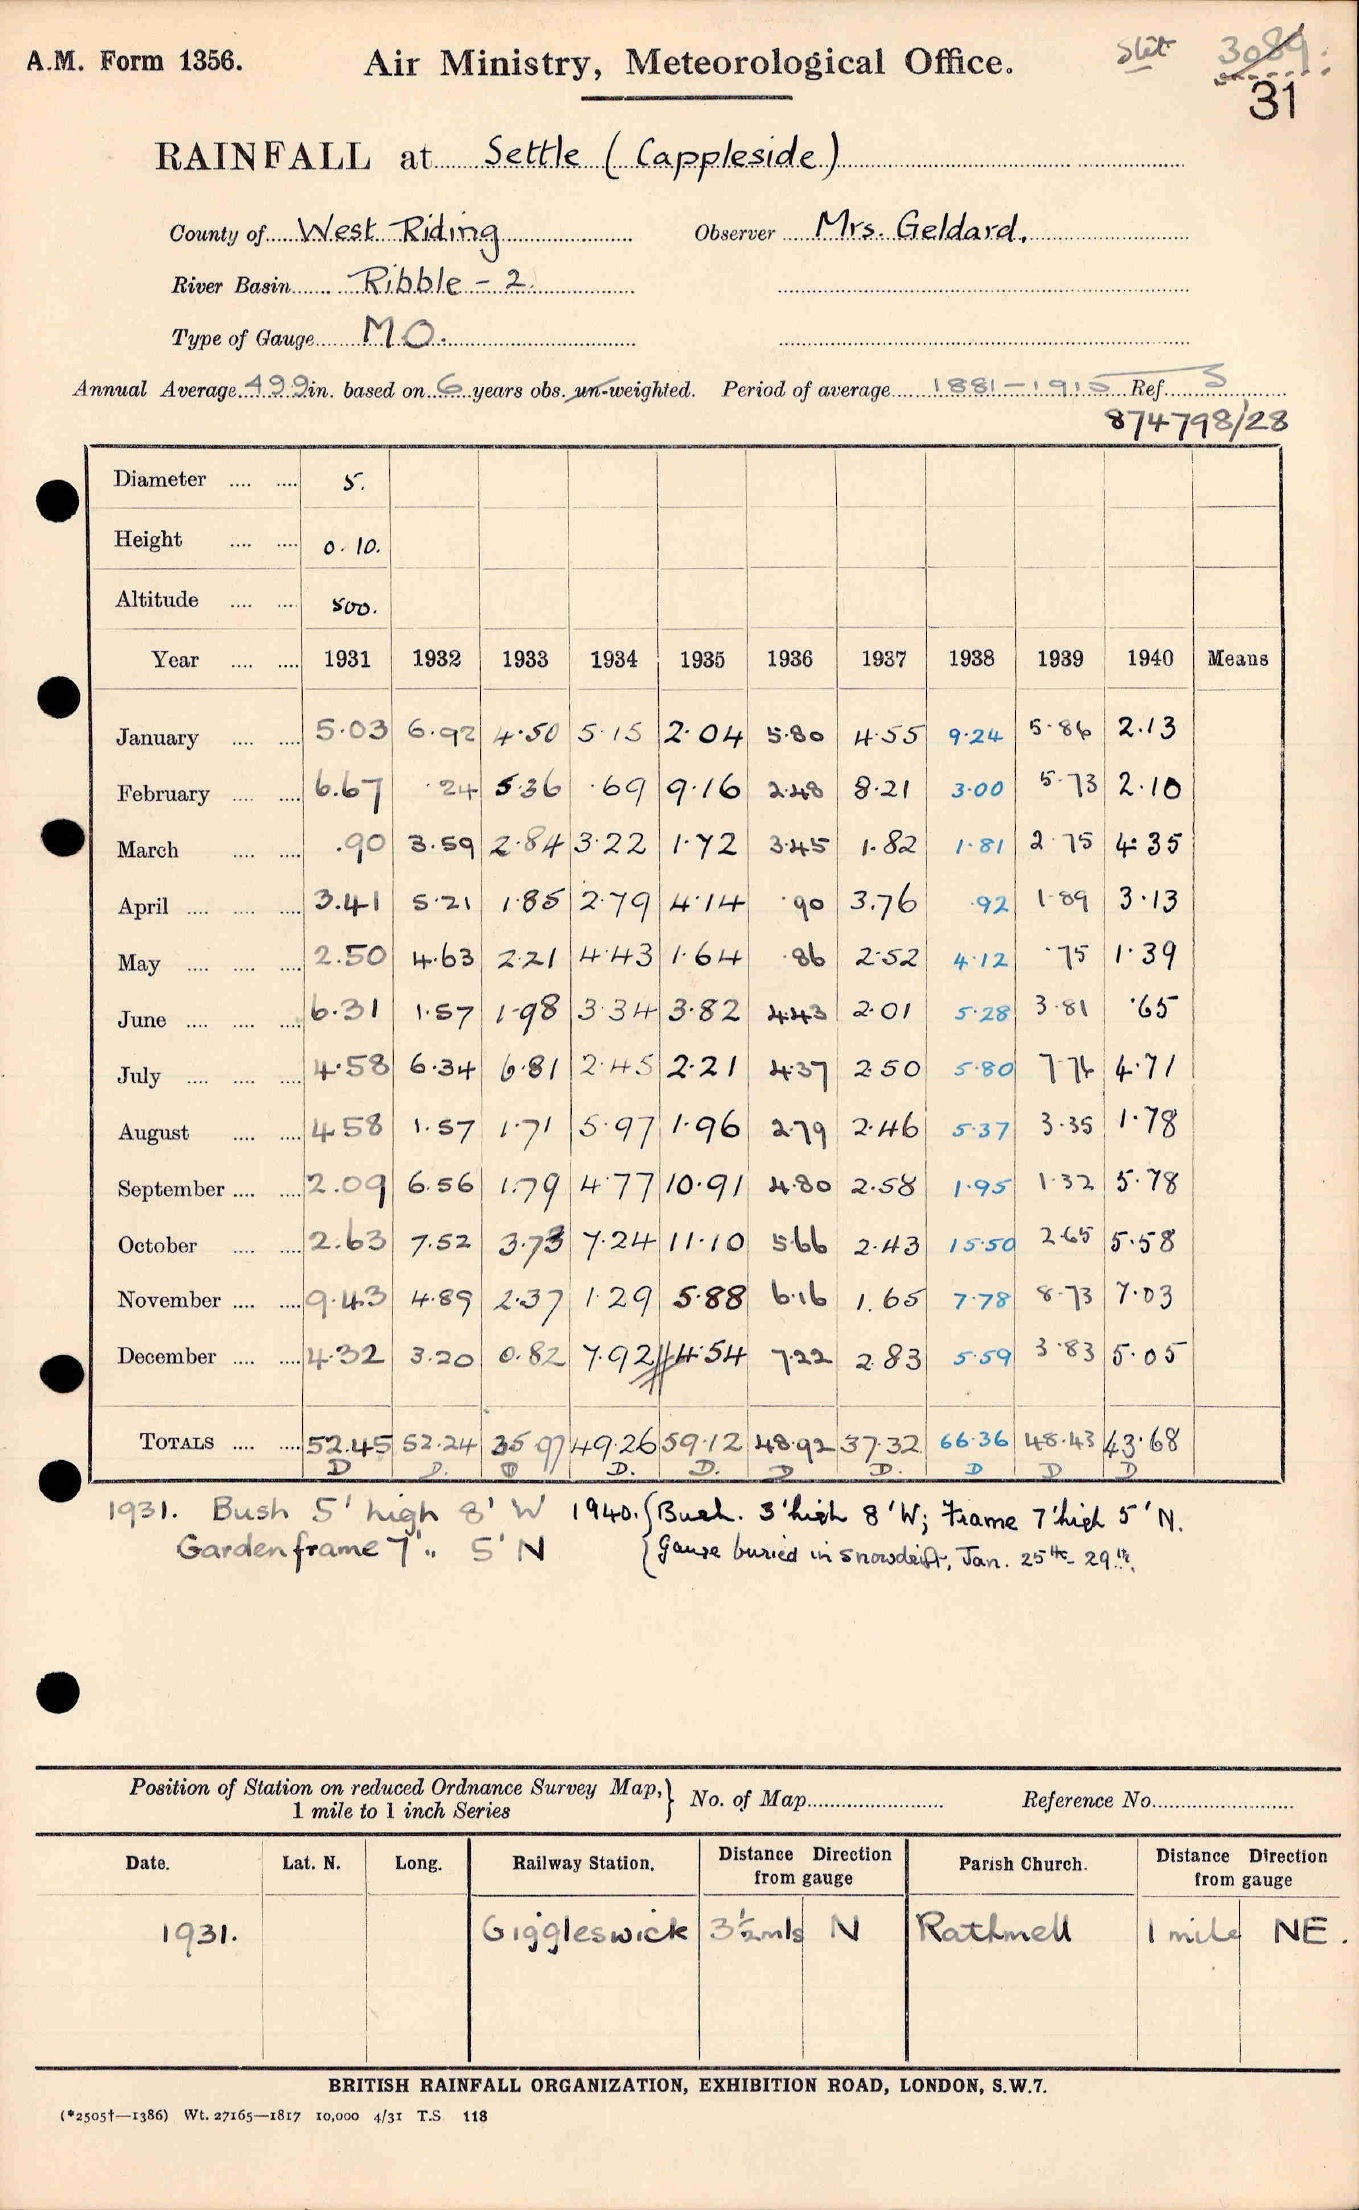 A.M. Form 1356.
Air Ministry, Meteorological Office.
3089.
31
RAINFALL at Settle (Cappleside)
County of West Riding Observer Mrs. Geldard.
River Basin Ribble - 2.
Type of Gauge M.O.
Annual Average 499 in. based on 6 years obs. un-weighted. Period of average 1881-1915 Ref. S
874798/28
Diameter .... .... 5.
Height .... .... 0. 10.
Altitude .... .... 500.
Year .... .... 1931 1932 1933 1934 1935 1936 1937 1938 1939 1940 Means
January .... .... 5.03 6.92 4.50 5.15 2.04 5.80 4.55 9.24 5.86 2.13
February .... .... 6.67 .24 5.36 .69 9.16 2.48 8.21 3.00 5.73 2.10
March .... .... .90 3.59 2.84 3.22 1.72 3.45 1.82 1.81 2.75 4.35
April .... .... .... 3.41 5.21 1.85 2.79 4.14 .90 3.76 .92 1.89 3.13
May .... .... .... 2.50 4.63 2.21 4.43 1.64 .86 2.52 4.12 .75 1.39
June .... .... .... 6.31 1.57 1.98 3.34 3.82 4.43 2.01 5.28 3.81 .65
July .... .... .... 4.58 6.34 6.81 2.45 2.21 4.37 2.50 5.80 7.76 4.71
August .... .... 4.58 1.57 1.71 5.97 1.96 2.79 2.46 5.37 3.35 1.78
September .... .... 2.09 6.56 1.79 4.77 10.91 4.80 2.58 1.95 1.32 5.78
October .... .... 2.63 7.52 3.73 7.24 11.10 5.66 2.43 15.50 2.65 5.58
November .... .... 9.43 4.89 2.37 1.29 5.88 6.16 1.65 7.78 8.73 7.03
December .... .... 4.32 3.20 0.82 7.92 4.54 7.22 2.83 5.59 3.83 5.05
TOTALS .... .... 52.45 52.24 35.97 49.26 59.12 48.92 37.32 66.36 48.43 43.68
D D. D D. D. D D. D D D
1931. Bush 5' high 8' W 1940. {Bush. 3' high 8' W; Frame 7' high 5' N.
Garden frame 7' " 5' N {Gauge buried in snowdrift, Jan. 25th - 29th.
Position of Station on reduced Ordnance Survey Map,} No. of Map Reference No.
1 mile to 1 inch Series
Date. Lat. N. Long. Railway Station. Distance Direction from gauge Parish Church. Distance Direction from gauge
1931. Giggleswick 3½ mls N Rathmell 1 mile NE.
BRITISH RAINFALL ORGANIZATION, EXHIBITION ROAD, LONDON, S.W.7.
(*2505†—1386) Wt. 27165—1817 10,000 4/31 T.S. 118